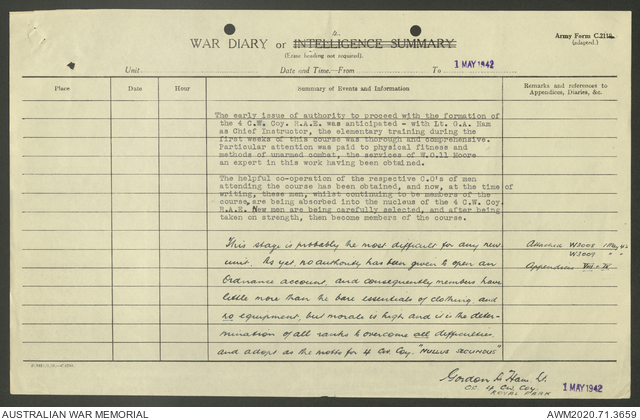 WAR DIARY or INTELLIGENCE SUMMARY
(Erase heading not required).
Army Form C.2118.
(adapted.)
Unit Date and Time.—From To 1 MAY 1942
Place Date Hour Summary of Events and Information Remarks and references to Appendices, Diaries, &c.
The early issue of authority to proceed with the formation of
the 4 C.W. Coy. R.A.E. was anticipated - with Lt. G.A. Ham
as Chief Instructor, the elementary training during the
first weeks of this course was thorough and comprehensive.
Particular attention was paid to physical fitness and
methods of unarmed combat, the services of W.O.11 Moore
an expert in this work having been obtained.
The helpful co-operation of the respective C.O's of men
attending the course has been obtained, and now, at the time of
writing, these men, whilst continuing to be members of the
course, are being absorbed into the nucleus of the 4 C.W. Coy.
R.A.E. New men are being carefully selected, and after being
taken on strength, then become members of the course.
This stage is probably the most difficult for any new Attached W3008 1 May 42
unit. As yet, no authority has been given to open an W3009 " "
Ordnance account, and consequently members have Appendices VIII + IX
little more than the bare essentials of clothing, and
no equipment, but morale is high and it is the deter-
mination of all ranks to overcome all difficulties
and adopt as the motto for 4 CW Coy. "NULLUS
Gordon A Ham Lt.
O.C. 4 C.W. Coy
ROYAL PARK
1 MAY 1942
AUSTRALIAN WAR MEMORIAL AWM2020.71.3659